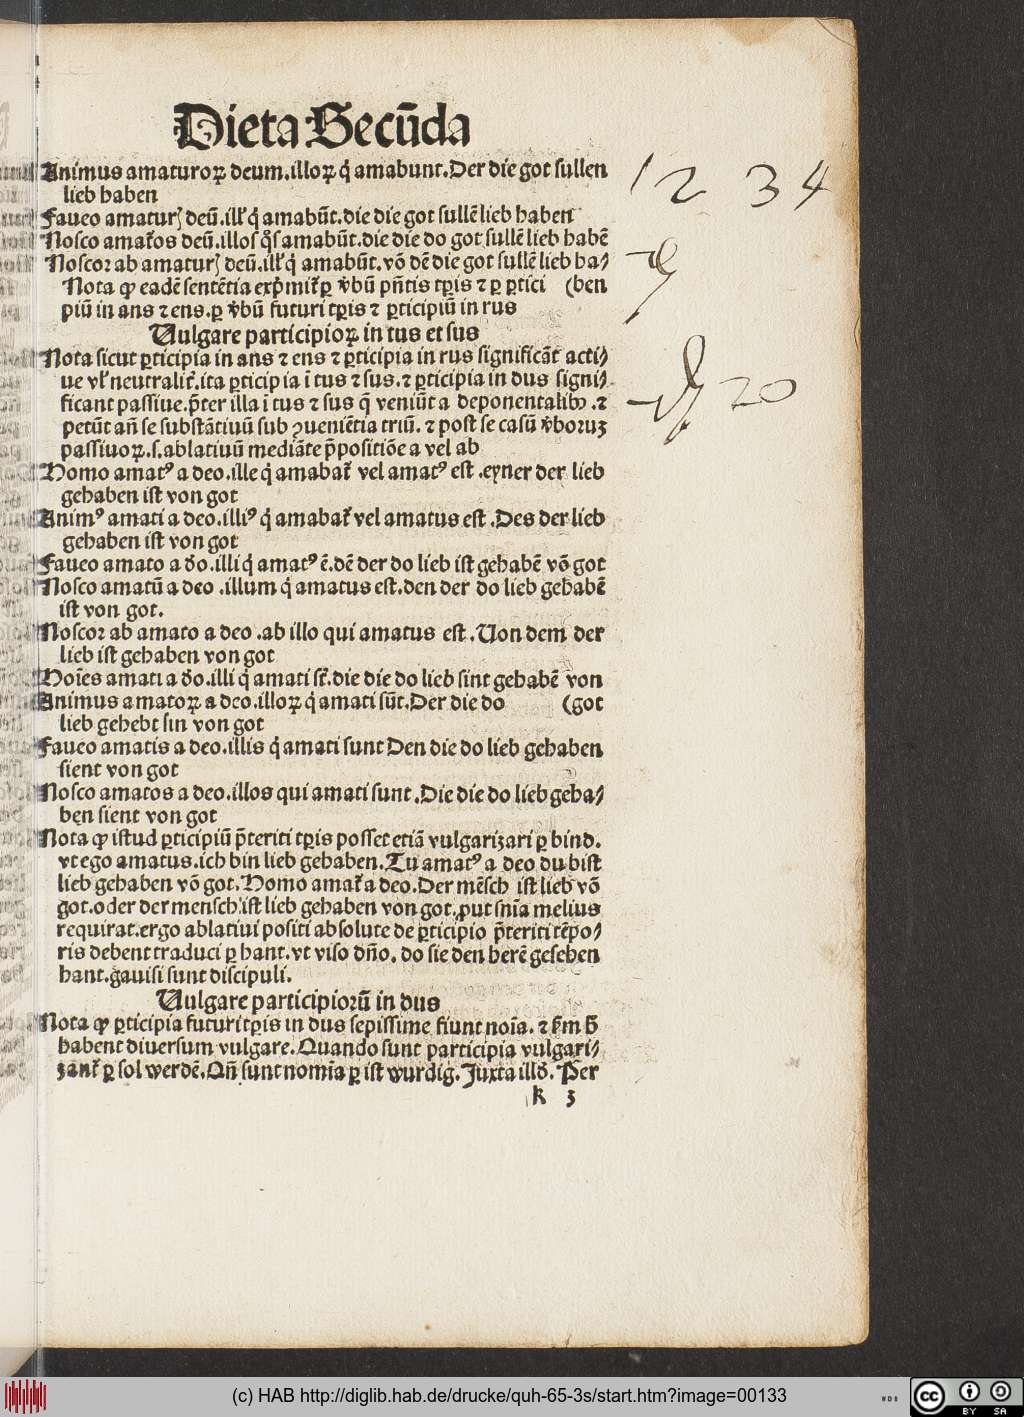 Dieta Secūda
Animus amaturoꝝ deum.illoꝝ q̇ amabunt.Der die got sullen
lieb haben
Faueo amatur⁊ deū.ill' q̇ amabūt.die die got sullē lieb haben
Nosco amat̉os deū.illos q̊s amabūt.die die do got sullē lieb habē
Noscor ab amatur⁊ deū.ill' q̇ amabūt.vō dē die got sullē lieb ha⸗
Nota ꝙ eadē sentētia exp̄mit̉ ꝑ v̓bū pn̄tis tꝑis ⁊ ꝑ ꝑtici (ben
piū in ans ⁊ ens.ꝑ v̓bū futuri tꝑis ⁊ ꝑticipiū in rus
Vulgare participioꝝ in tus et sus
Nota sicut ꝑticipia in ans ⁊ ens ⁊ ꝑticipia in rus significāt acti⸗
ue vl' neutralit̉.ita ꝑticipia ī tus ⁊ sus.⁊ ꝑticipia in dus signi⸗
ficant passiue.p̄ter illa ī tus ⁊ sus q̄ veniūt a deponentalibꝰ.⁊
petūt an̄ se substātiuū sub ꝯueniētia triū.⁊ post se casū v̓boruꝫ
passiuoꝝ.s.ablatiuū mediāte p̄positiōe a vel ab
Homo amatꝰ a deo.ille q̇ amabat̉ vel amatꝰ est.eyner der lieb
gehaben ist von got
Animꝰ amati a deo.illiꝰ q̇ amabat̉ vel amatus est.Des der lieb
gehaben ist von got
Faueo amato a d̓o.illi q̇ amatꝰ ē.dē der do lieb ist gehabē vō got
Nosco amatū a deo.illum q̇ amatus est.den der do lieb gehabē
ist von got.
Noscor ab amato a deo.ab illo qui amatus est.Von dem der
lieb ist gehaben von got
Hoīes amati a d̓o.illi q̇ amati st̄.die die do lieb sint gehabē von
Animus amatoꝝ a deo.illoꝝ q̇ amati sūt.Der die do (got
lieb gehebt sin von got
Faueo amatis a deo.illis q̇ amati sunt Den die do lieb gehaben
sient von got
Nosco amatos a deo.illos qui amati sunt.Die die do lieb geha⸗
ben sient von got
Nota ꝙ istud ꝑticipiū p̄teriti tꝑis posset etiā vulgarizari ꝑ bind.
vt ego amatus.ich bin lieb gehaben.Tu amatꝰ a deo du bist
lieb gehaben vō got.Homo amat̉ a deo.Der mēsch ist lieb vō
got.oder der mensch ist lieb gehaben von got.ꝓut sn̄ia melius
requirat.ergo ablatiui positi absolute de ꝑticipio p̄teriti tēpo⸗
ris debent traduci ꝑ hant.vt viso dn̄o.do sie den herē gesehen
hant.gauisi sunt discipuli.
Vulgare participiorū in dus
Nota ꝙ ꝑticipia futuri tꝑis in dus sepissime fiunt noīa.⁊ k̓m h̄
habent diuersum vulgare.Quando sunt participia vulgari⸗
zant̉ ꝑ sol werdē.Qn̄ sunt nomīa ꝑ ist wurdig.Juxta illd̓.P̄ter
k 3
1 2 3 4
20
(c) HAB http://diglib.hab.de/drucke/quh-65-3s/start.htm?image=00133
WDB
cc BY SA